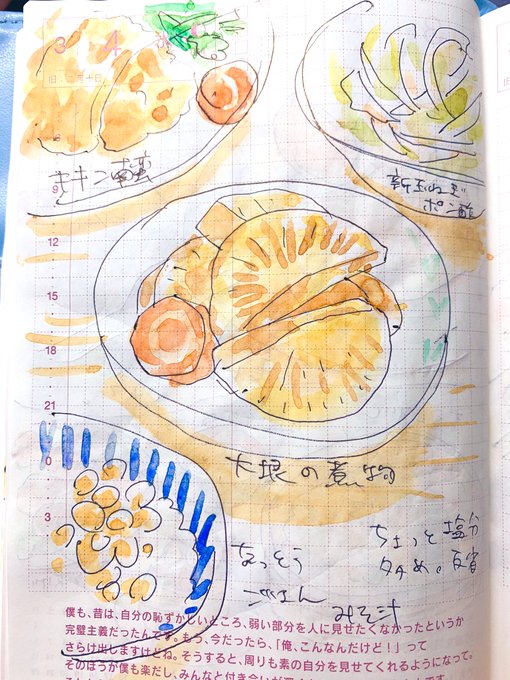 3 4
9
チキン南蛮
新玉ねぎ
ポン酢
12
15
18
21
大根の煮物
0
3
ちょっと塩分
多め。反省
なっとう
ごはん
みそ汁
僕も、昔は、自分の恥ずかしいところ、弱い部分を人に見せたくなかったというか
完璧主義だったんです。もう、今だったら、「俺、こんなんだけど！」って
さらけ出しますけどね。そうすると、周りも素の自分を見せてくれるようになって。
そのほうが僕も楽だし、みんなと付き合いが